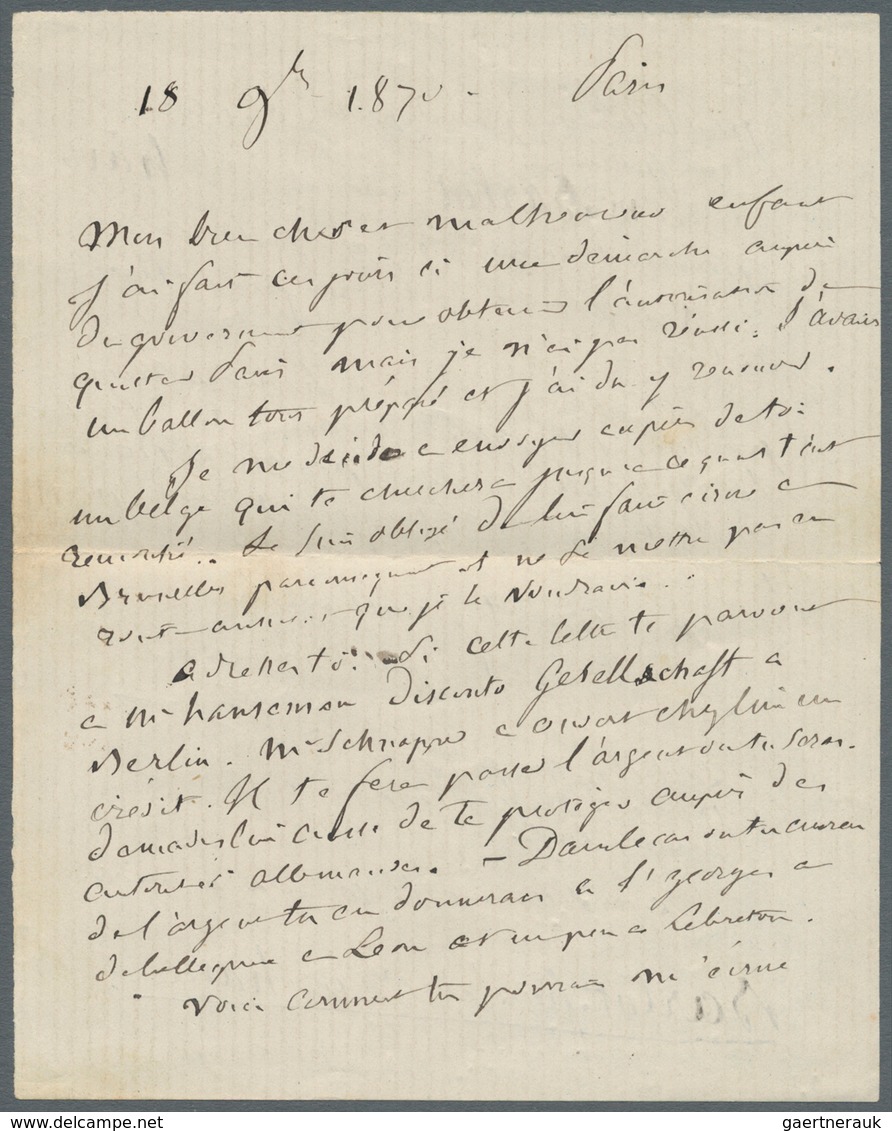 18 9br 1870 - Paris
Mon bien cher et malheureux enfant
J'ai fait ces jours ci une démarche auprès
du gouvernement pour obtenir l'autorisation de
quitter Paris mais je n'ai pas réussi. J'avais
un ballon tout préparé et j'ai du y renoncer.
Je me décide a envoyer auprès de toi
un belge qui te cherchera jusqu'a ce quoi t'ait
rencontré.. Je suis obligé de lui faire écrire a
Bruxelles par conséquent ne se mettra pas en
route aussi que je le voudrais..
adresse toi si cette lettre te parvient
a Mr hanseman Disconto Gesellschaft a
Berlin. Mr Schnapper a ouvert chez lui un
crédit. Il te fera passer l'argent dont tu seras.
demandes lui aussi de te protéger auprès des
autorités allemandes. - Dans le cas ou tu aurais
de l'argent tu en donnerais a St georges a
debellegarde a Leon et un peu a Lebreton.
Voici comment tu pourrais m'écrire
gaertnerauk